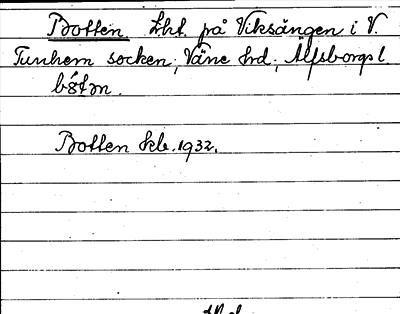 Botten. Lht. på Viksängen i V.
Tunhem socken, Väne hrd, Älfsborgs l
Botten skb. 1932.